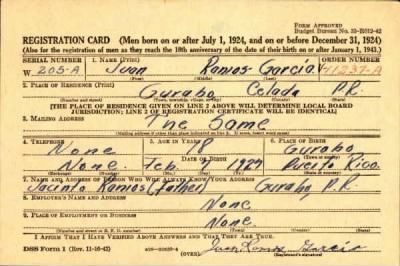 FORM APPROVED
Budget Bureau No. 33-R012-42
REGISTRATION CARD (Men born on or after July 1, 1924, and on or before December 31, 1924)
(Also for the registration of men as they reach the 18th anniversary of the date of their birth on or after January 1, 1943.)
SERIAL NUMBER 1. NAME (Print) ORDER NUMBER
W 205-A Juan Ramos García 41237-A
2. PLACE OF RESIDENCE (Print)
Gurabo Celada P.R.
(Number and street) (Town, township, village, or city) (County) (State)
[THE PLACE OF RESIDENCE GIVEN ON LINE 2 ABOVE WILL DETERMINE LOCAL BOARD
JURISDICTION; LINE 2 OF REGISTRATION CERTIFICATE WILL BE IDENTICAL]
3. MAILING ADDRESS
The Same
[Mailing address if other than place indicated on line 2. If same, insert word same]
4. TELEPHONE 5. AGE IN YEARS 6. PLACE OF BIRTH
None 18 Gurabo
DATE OF BIRTH (Town or county)
None. Feb. 1924 Puerto Rico.
7. NAME AND ADDRESS OF PERSON WHO WILL ALWAYS KNOW YOUR ADDRESS
Jacinto Ramos (father) Gurabo, P.R.
8. EMPLOYER'S NAME AND ADDRESS
None
9. PLACE OF EMPLOYMENT OR BUSINESS
None.
(Number and street or R. F. D. number) (Town) (County) (State)
I AFFIRM THAT I HAVE VERIFIED ABOVE ANSWERS AND THAT THEY ARE TRUE.
DSS Form 1 (Rev. 11-16-42) (OVER) Juan Ramos García
(Registrant's signature)